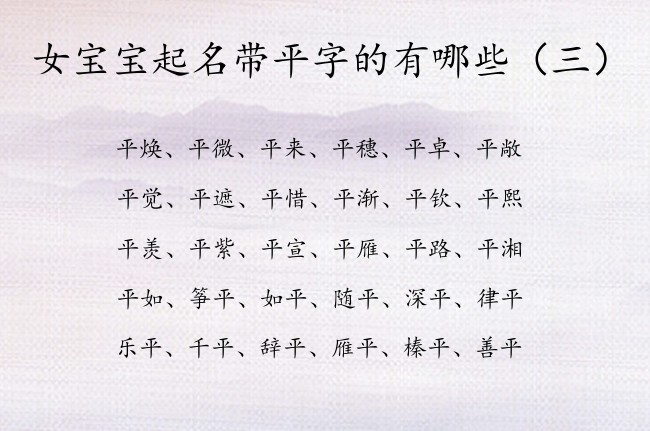 女宝宝起名带平字的有哪些（三）
平焕、平微、平来、平穗、平卓、平敞
平觉、平遮、平惜、平渐、平钦、平熙
平羡、平紫、平宣、平雁、平路、平湘
平如、筝平、如平、随平、深平、律平
乐平、千平、辞平、雁平、榛平、善平